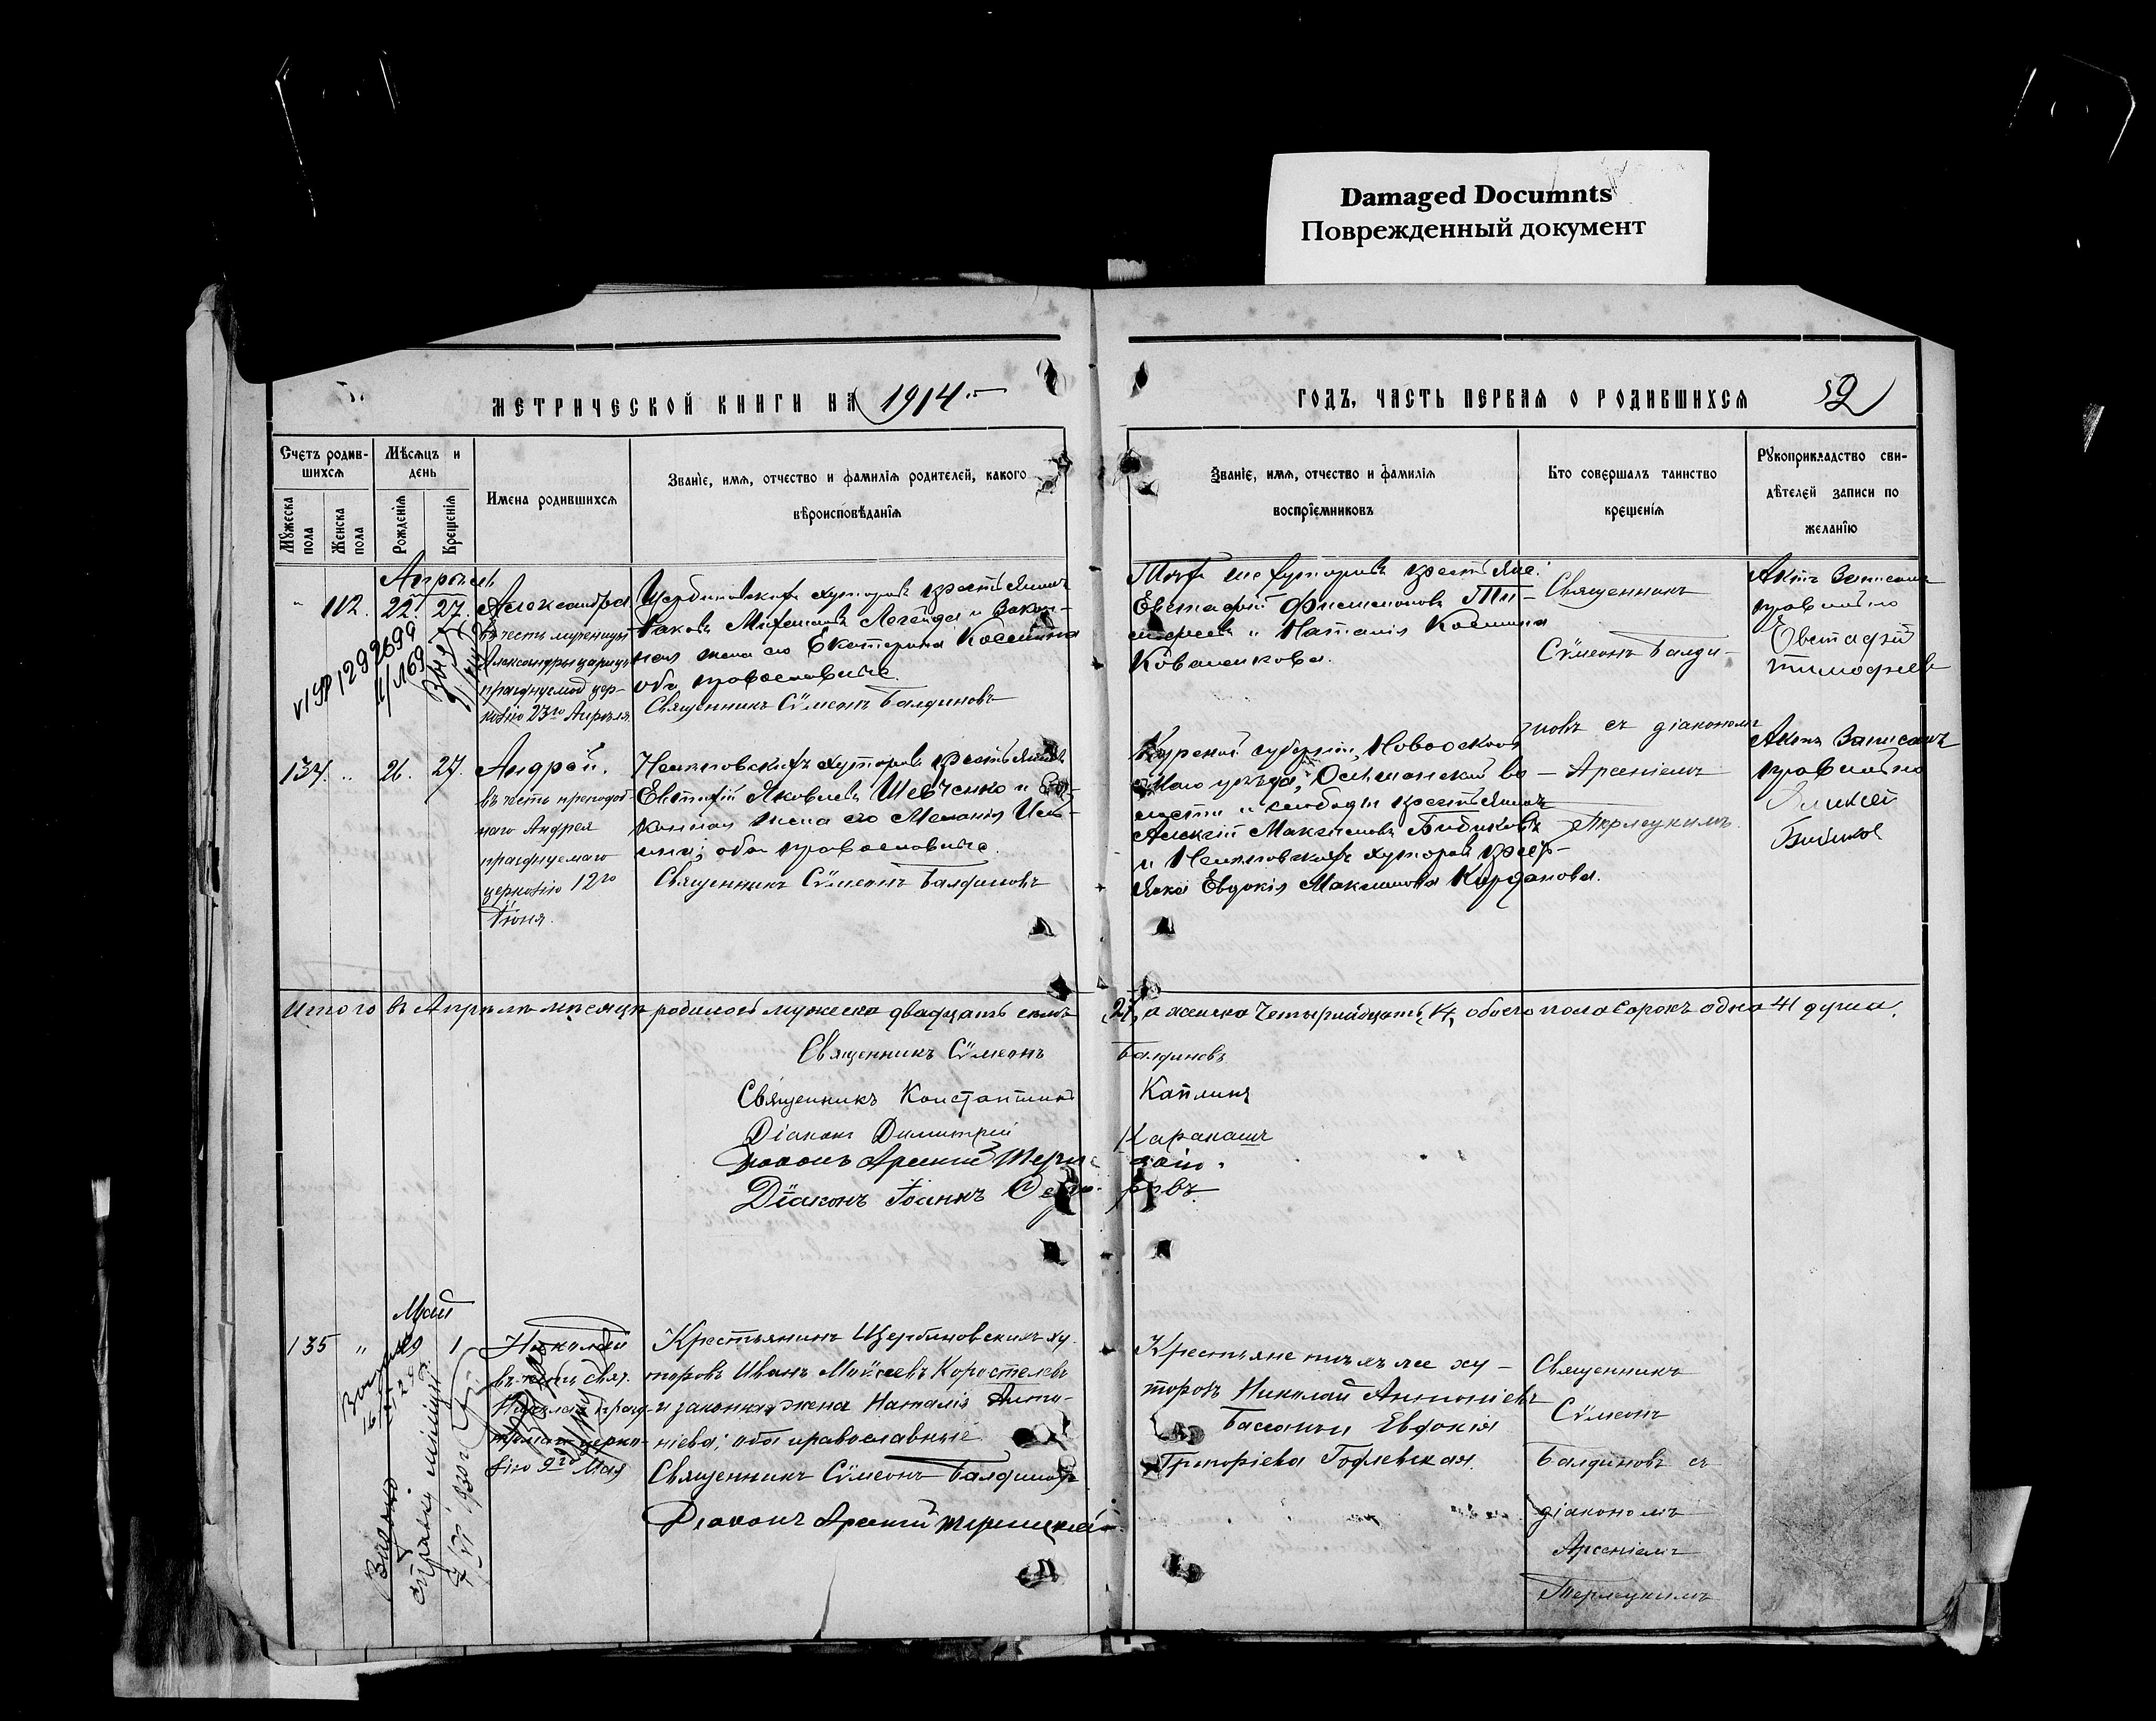 Damaged Documnts
Поврежденный документ
МЕТРИЧЕСКОЙ КНИГИ НА 1914
ГОДЪ, ЧАСТЬ ПЕРВАЯ О РОДИВШИХСЯ
52
Счетъ родив-
шихся
Мѣсяцъ и
день
Мужеска
пола
Женска
пола
Рожденія
Крещенія
Имена родившихся
Званіе, имя, отчество и фамилія родителей, какого
вѣроисповѣданія
Званіе, имя, отчество и фамилія
воспріемниковъ
Кто совершалъ таинство
крещенія
Рукоприкладство сви-
дѣтелей записи по
желанію
Апрѣль
112. 22. 27.
Александра
въ честь мученицы
Александры царицы
празднуемой цер-
ковію 23го Апрѣля.
Щербиновскихъ хуторовъ крестьянинъ
Яковъ Легейда и закон-
ная жена его Екатерина Космина
оба православные.
Священникъ Сѵмеонъ Балдиновъ
Тѣхъ же хуторовъ крестьяне:
Евстафій Филимоновъ Ти-
мофеевъ и Наталія Космина
Коваленкова.
Священникъ
Сѵмеонъ Балди-
новъ съ діакономъ
Арсеніемъ
Терлецкимъ.
Актъ записанъ
правильно
Евстафій
Тимофеев
134. " 26. 27.
Андрей.
въ честь преподоб
наго Андрея
празднуемаго
церковію 12го
Іюня.
хуторовъ крестьянинъ
Евтихій Яковлевъ Шевченко и за-
конная жена его Меланія
оба православные.
Священникъ Сѵмеонъ Балдиновъ
Курской губерніи, Новооскол
скаго уѣзда, волости и слободы крестьянинъ
Алексѣй Максимовъ Бибиковъ
и хуторовъ крестьянка
Евдокія Максимова
Актъ записанъ
правильно
Алексей
Бибиков
Итого въ Апрѣлѣ мѣсяцѣ родилось мужеска двадцать семь 27, а женска четырнадцать 14, обоего пола сорокъ одна 41 душа.
Священникъ Сѵмеонъ Балдиновъ
Священникъ Константинъ Каплинъ
Діаконъ Димитрій Каракашъ
Діаконъ Арсеній
Діаконъ Іоаннъ
Май
135 " 29 1
Николай
въ честь Свят.
Николая празд-
церко-
вію 9го Мая
Крестьянинъ Щербиновскихъ ху-
торовъ Иванъ Моѵсеевъ Коростелевъ
и законная жена Наталія Анто-
ніева; оба православные
Священникъ Сѵмеонъ Балдиновъ
Діаконъ Арсеній Терлецкій
Крестьяне тѣхъ же ху-
торовъ Николай Антоніевъ
Евдокія
Григоріева
Священникъ
Сѵмеонъ
Балдиновъ съ
діакономъ
Арсеніемъ
Терлецкимъ